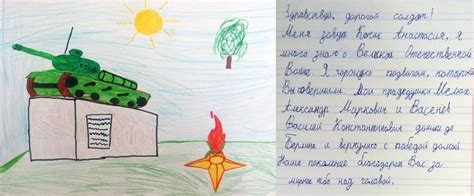 Здравствуй, дорогой солдат!
Меня зовут Анастасия, я
много знаю о Великой Отечественной
Войне. Я горжусь подвигом, который
совершили Мои прадедушки
Александр Маркович и
Василий Константинович дошли до
Берлина и вернулись с победой домой.
Наше поколение благодарит Вас за
мирное небо над головой.